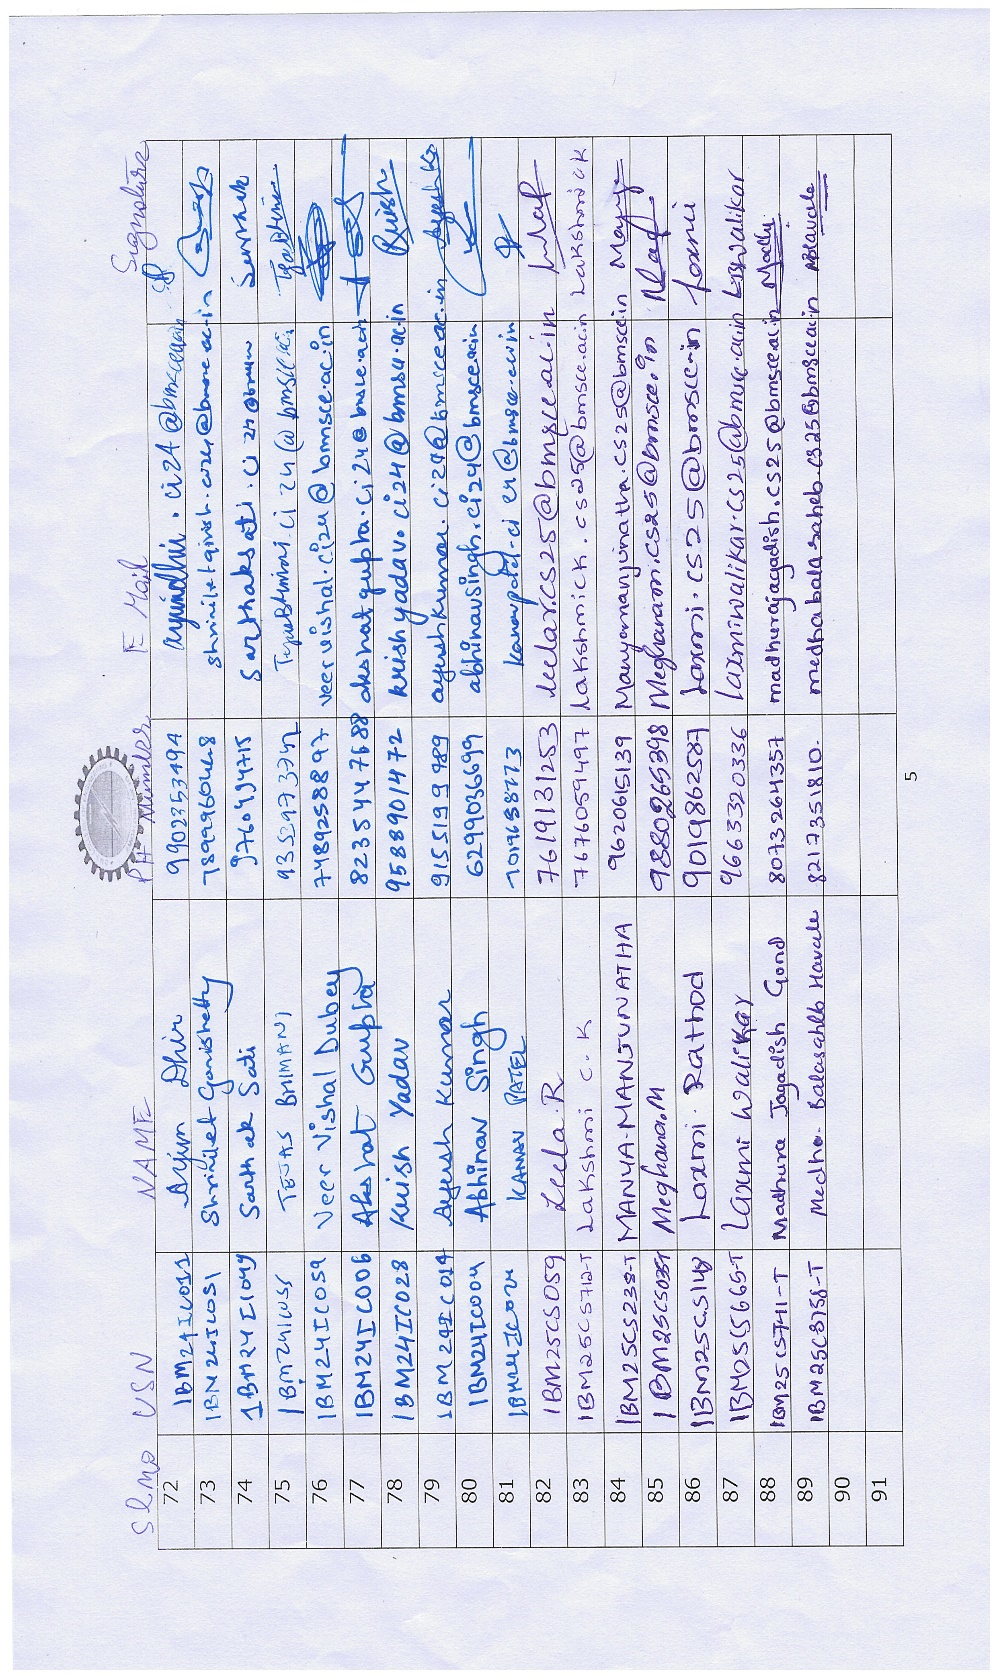 Slno USN NAME PH Number E Mail Signature
72 1BM24IC011 Arjun Dhir 9902353494 arjundhir.ci24@bmsce.ac.in
73 1BM24IC051 Shrinilet Ganishetty
74 1BM24IC049 Sarthak Sati sarthaksati.ci24@bmsce Sarthak
75 1BM24IC055 TEJAS BHIMANI
76 1BM24IC059 Veer Vishal Dubey 7489258897 veervishal.ci24@bmsce.ac.in
77 1BM24IC006 Akshat Gupta 8235447688 akshatgupta.ci24@bmsce.ac.in
78 1BM24IC028 Krish Yadav 9588901472 krishyadav.ci24@bmsce.ac.in Krish
79 1BM24IC014 Ayush Kumar 9155199989 ayushkumar.ci24@bmsce.ac.in
80 1BM24IC004 Abhinav Singh 6299036699 abhinavsingh.ci24@bmsce.ac.in
81 KANAV PATEL kanavpatel.ci24@bmsce.ac.in
82 1BM25CS059 Leela.R 7619131253 leelar.cs25@bmsce.ac.in
83 1BM25CS712-T Lakshmi C.K 7676059497 Lakshmick.cs25@bmsce.ac.in Lakshmick
84 1BM25CS238-T MANYA-MANJUNATHA 9620615139 Manyamanjunatha.cs25@bmsce.in
85 Meghana.M 9880265398 Meghanam.cs25@bmsce.in
86 1BM25CS148 Laxmi Rathod 9019862587 Laxmi.cs25@bmsce.in Laxmi
87 1BM25CS665-T Laxmi Walikar 9663320336 laxmiwalikar.cs25@bmsce.ac.in
88 1BM25CS741-T Madhura Jagadish Gond 8073264357 madhurajagadish.cs25@bmsce.ac.in
89 1BM25CS758-T Medha Balasaheb Havale 8217351810 medhabalasaheb.cs25@bmsce.ac.in
90
91
5